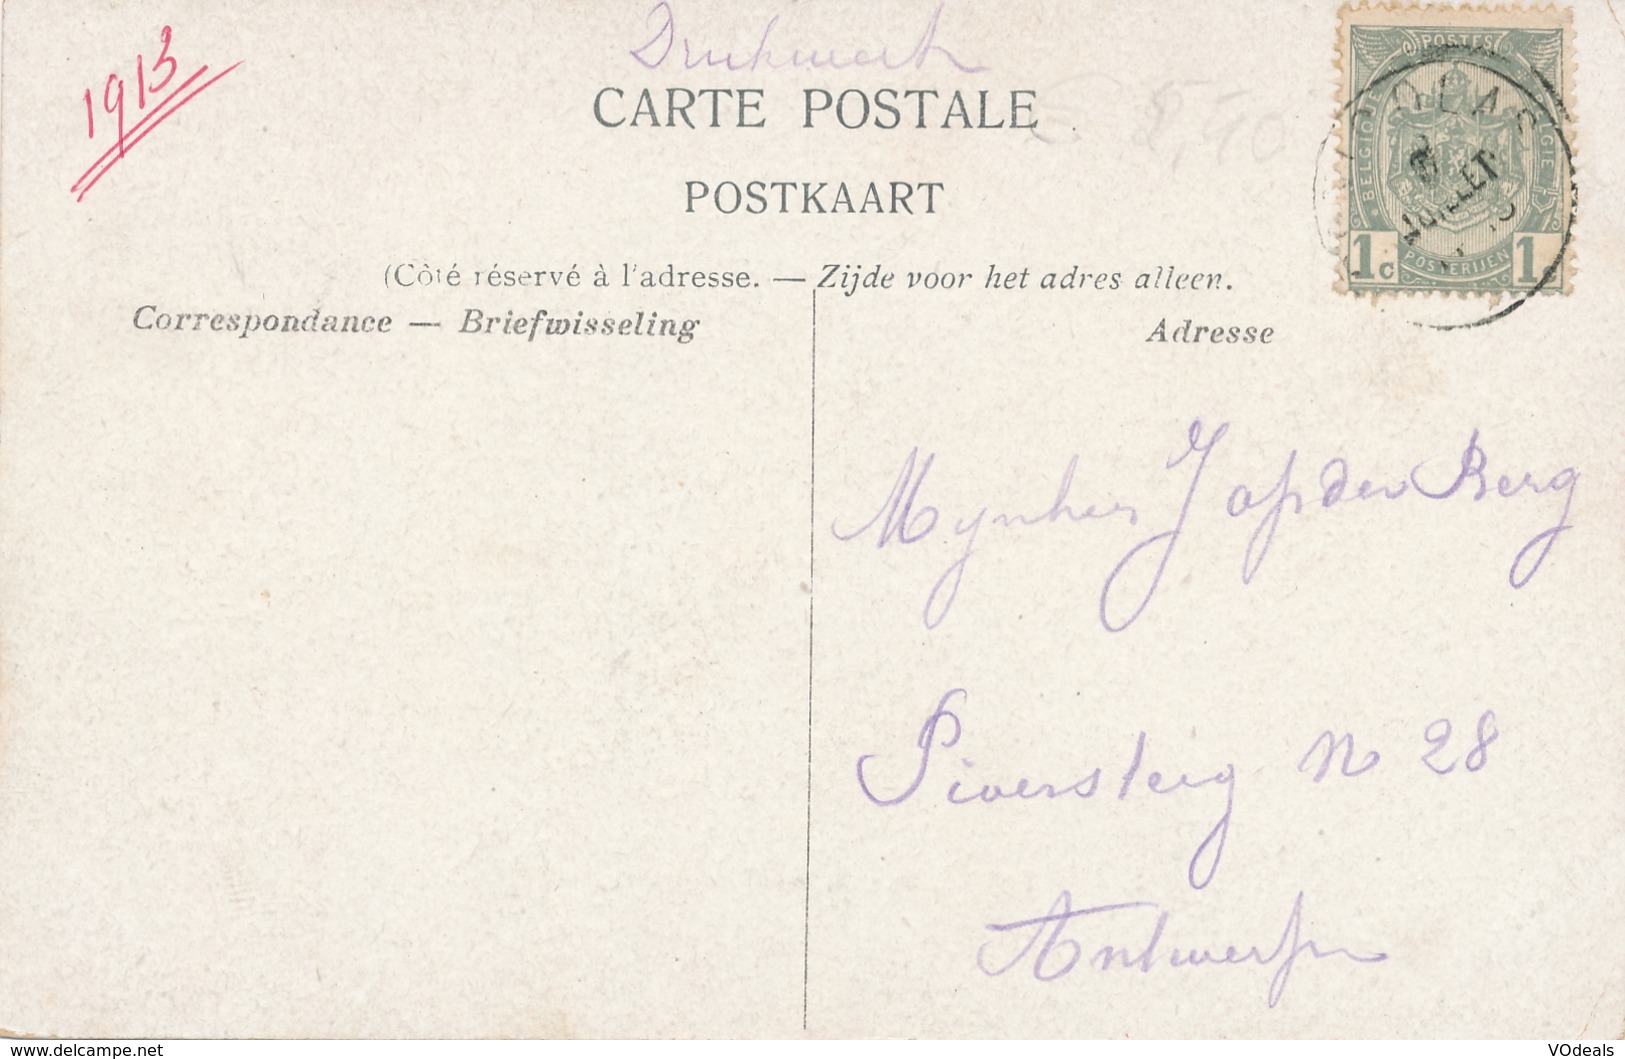 1913
Drukwerk
CARTE POSTALE
POSTKAART
(Côté réservé à l'adresse. — Zijde voor het adres alleen.
Correspondance — Briefwisseling
Adresse
POSTES
BELGIQUE
BELGIË
1c
1c
POSTERIJEN
JUILLET
Mynheer J op den Berg
Pieversteeg No 28
Antwerpen
VOdeals
www.delcampe.net